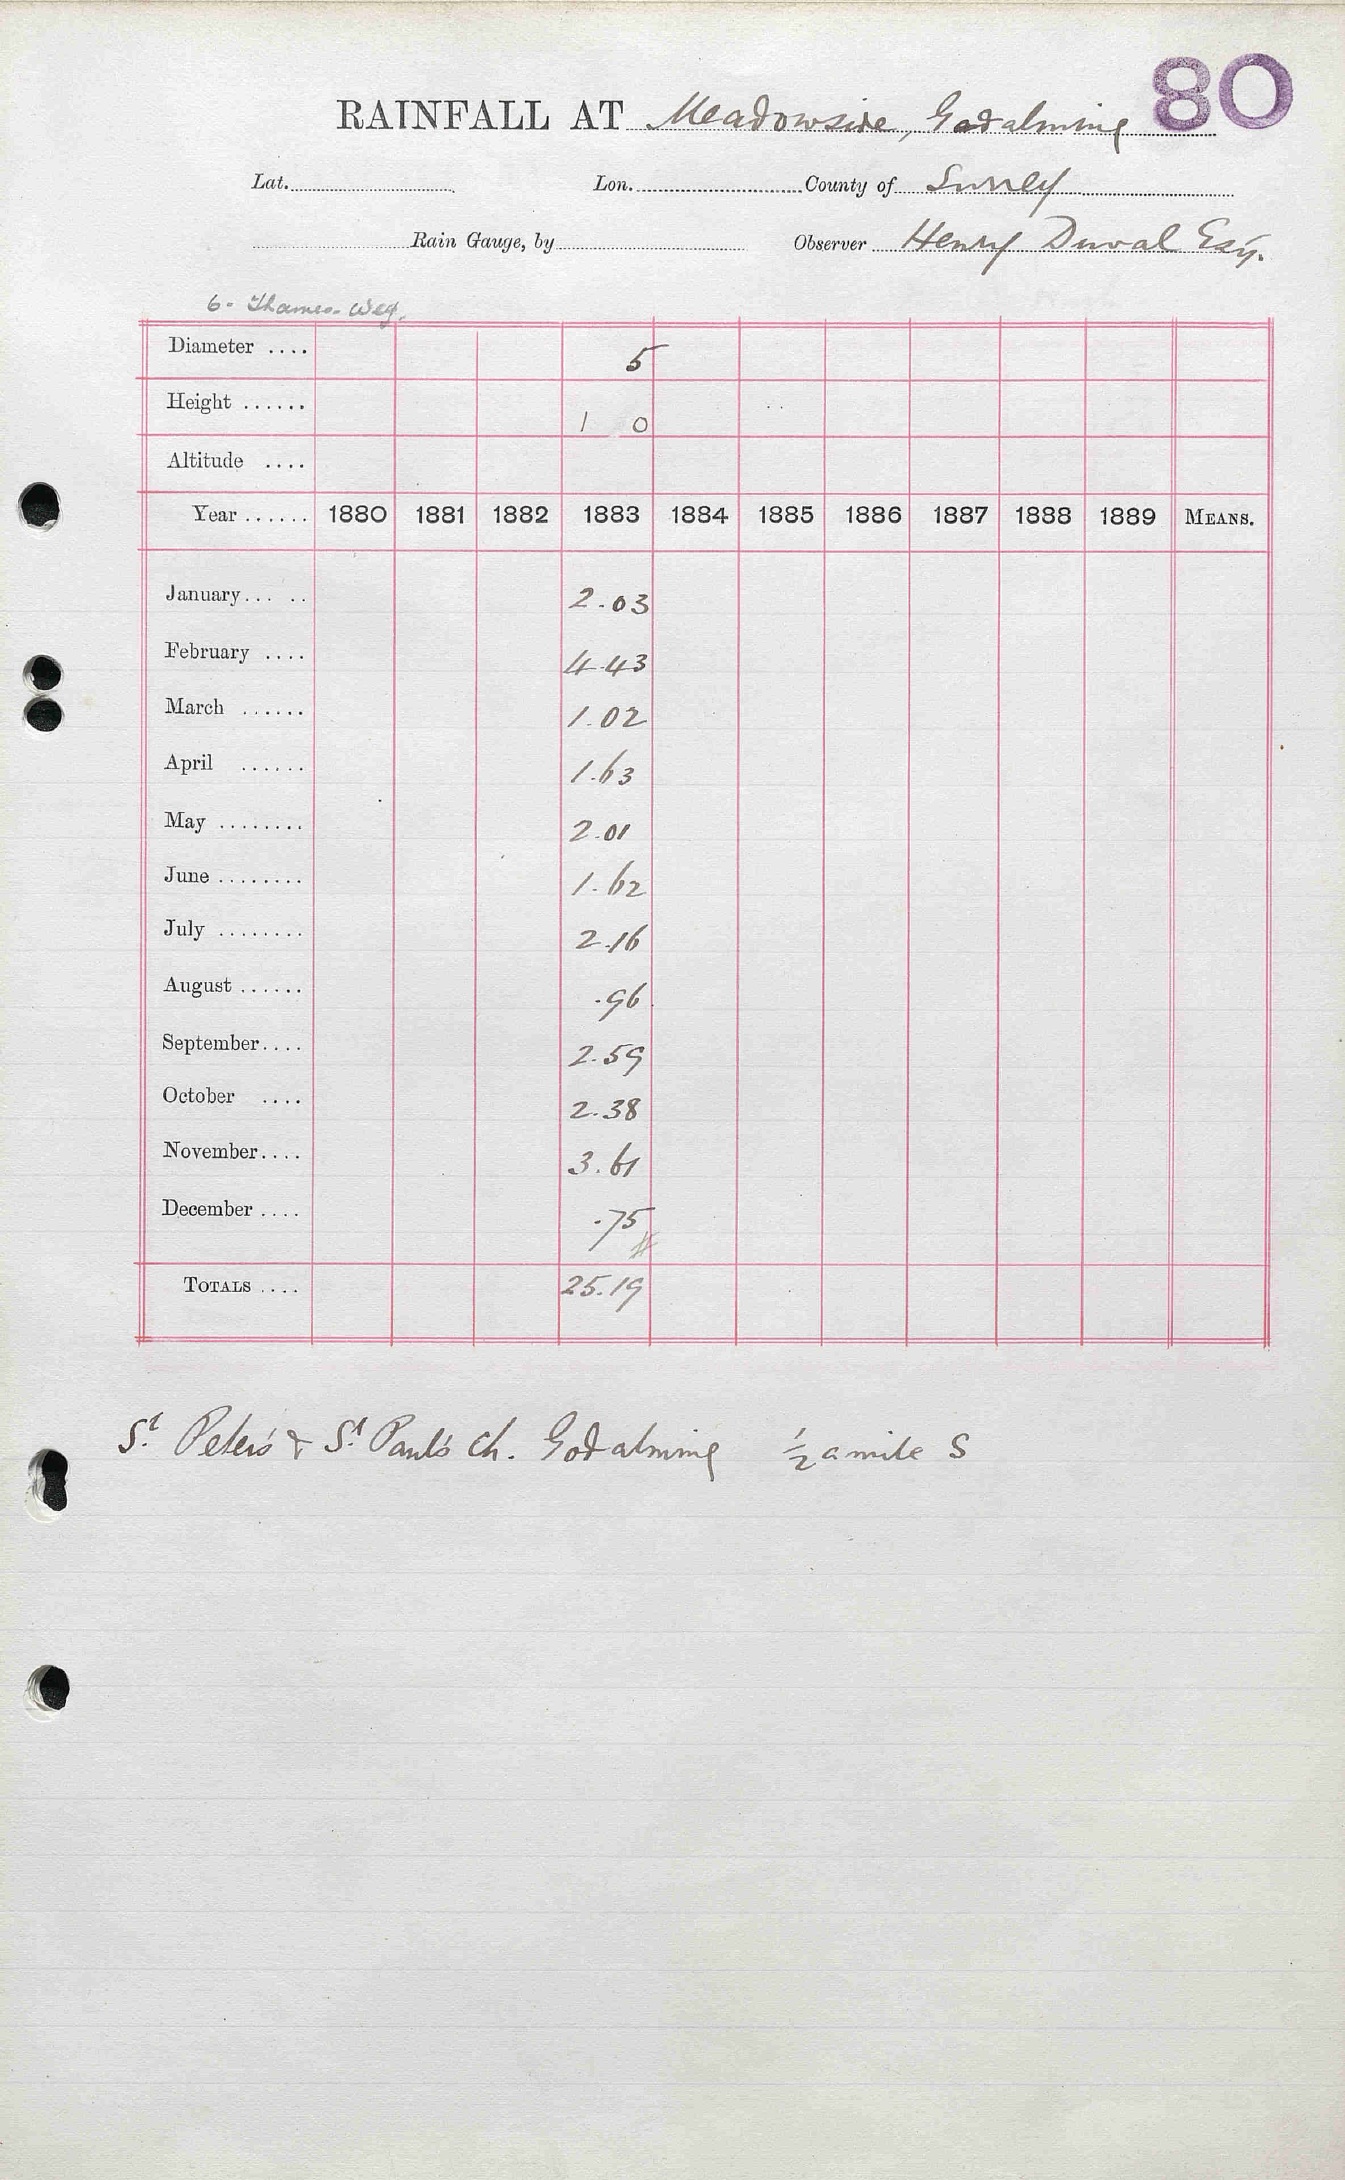 80
RAINFALL AT Meadowside, Godalming
Lat. Lon. County of Surrey
Rain Gauge, by Observer Henry Duval Esq.
6 - Thames - Wey.
Diameter .... 5
Height ...... 1 0
Altitude ....
Year ...... 1880 1881 1882 1883 1884 1885 1886 1887 1888 1889 MEANS.
January... .. 2.03
February .... 4.43
March ...... 1.02
April ...... 1.63
May ........ 2.01
June ........ 1.62
July ........ 2.16
August ...... .96
September.... 2.59
October .... 2.38
November.... 3.61
December .... .75
TOTALS .... 25.19
St. Peter's & St. Paul's Ch. Godalming ½ a mile S